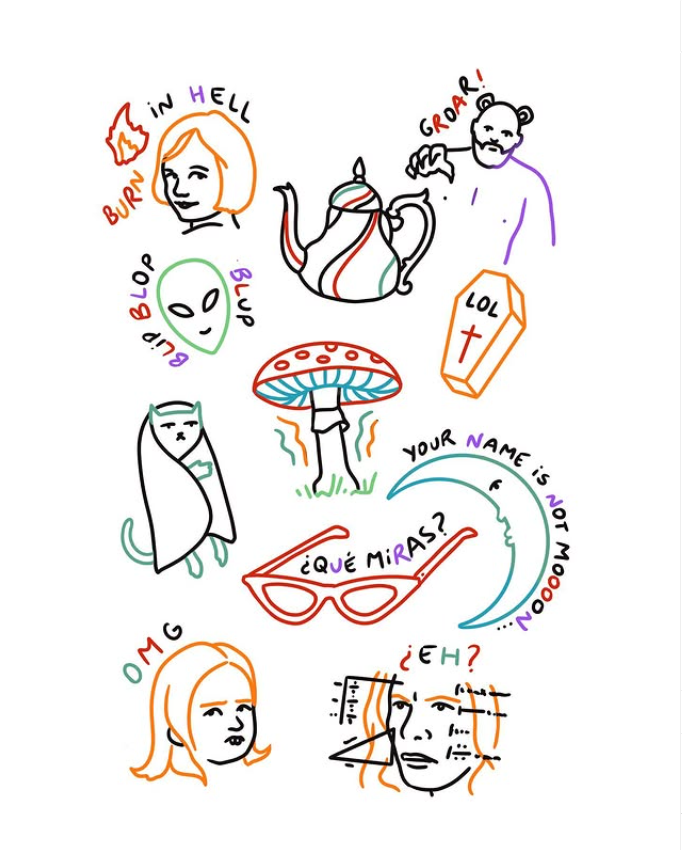 BURN iN HELL
GROAR!
BLiP BLOP BLUP
LOL
YOUR NAME iS NOT MOOOON...
¿QUÉ MiRAS?
OMG
¿EH?